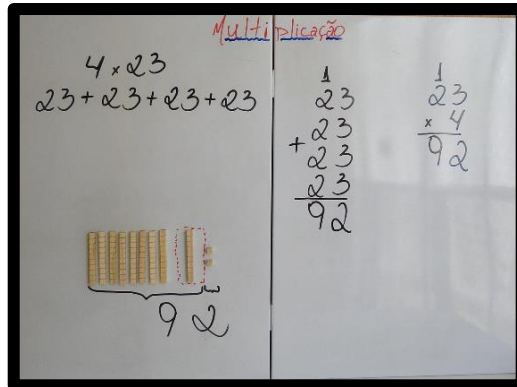 Multiplicação
4 x 23
23 + 23 + 23 + 23
9 2
1
23
23
+ 23
23
92
1
23
x 4
92